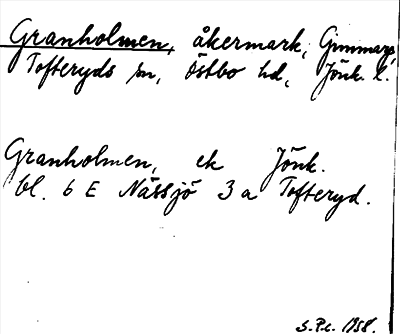 Granholmen, åkermark, Gimmarp,
Tofteryds sn, Östbo hd, Jönk. l.
Granholmen, ek Jönk.
bl. 6 E Nässjö 3 a Tofteryd.
1958.